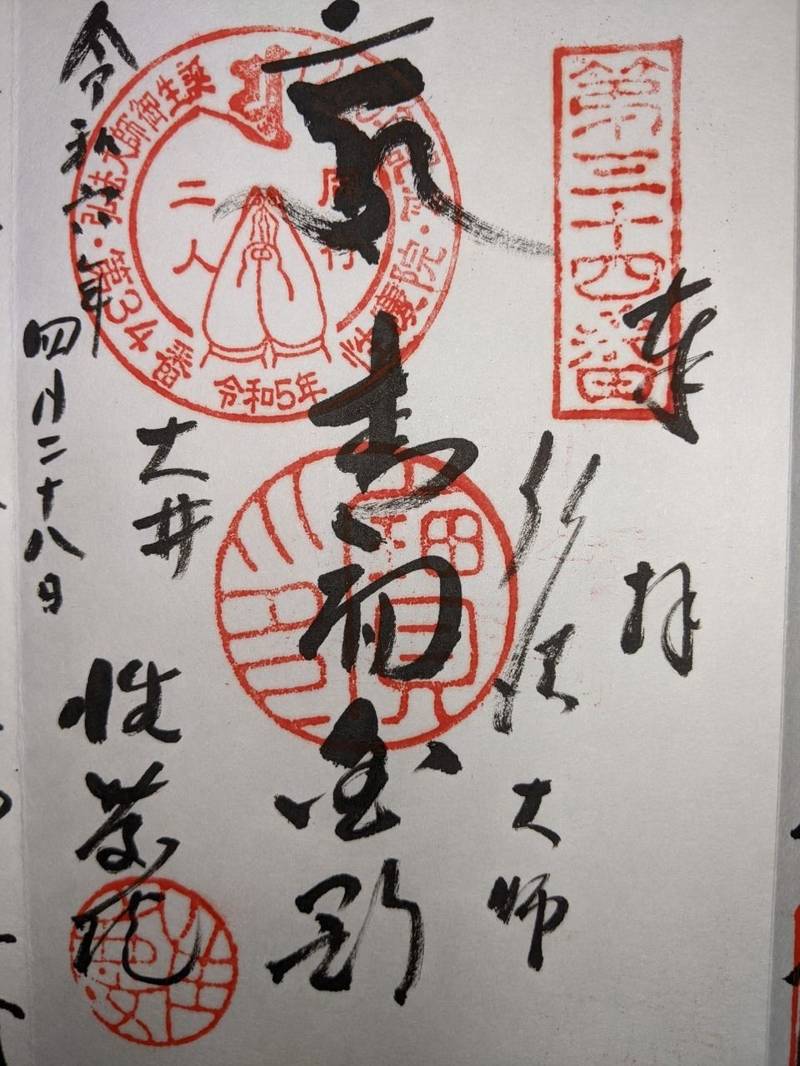 第三十四番
奉
拝
弘法
大師
青面金剛
大井
性慶院
令和六年
四月二十八日
弘法大師御生誕
第34番
令和5年
性慶院
同行
二人